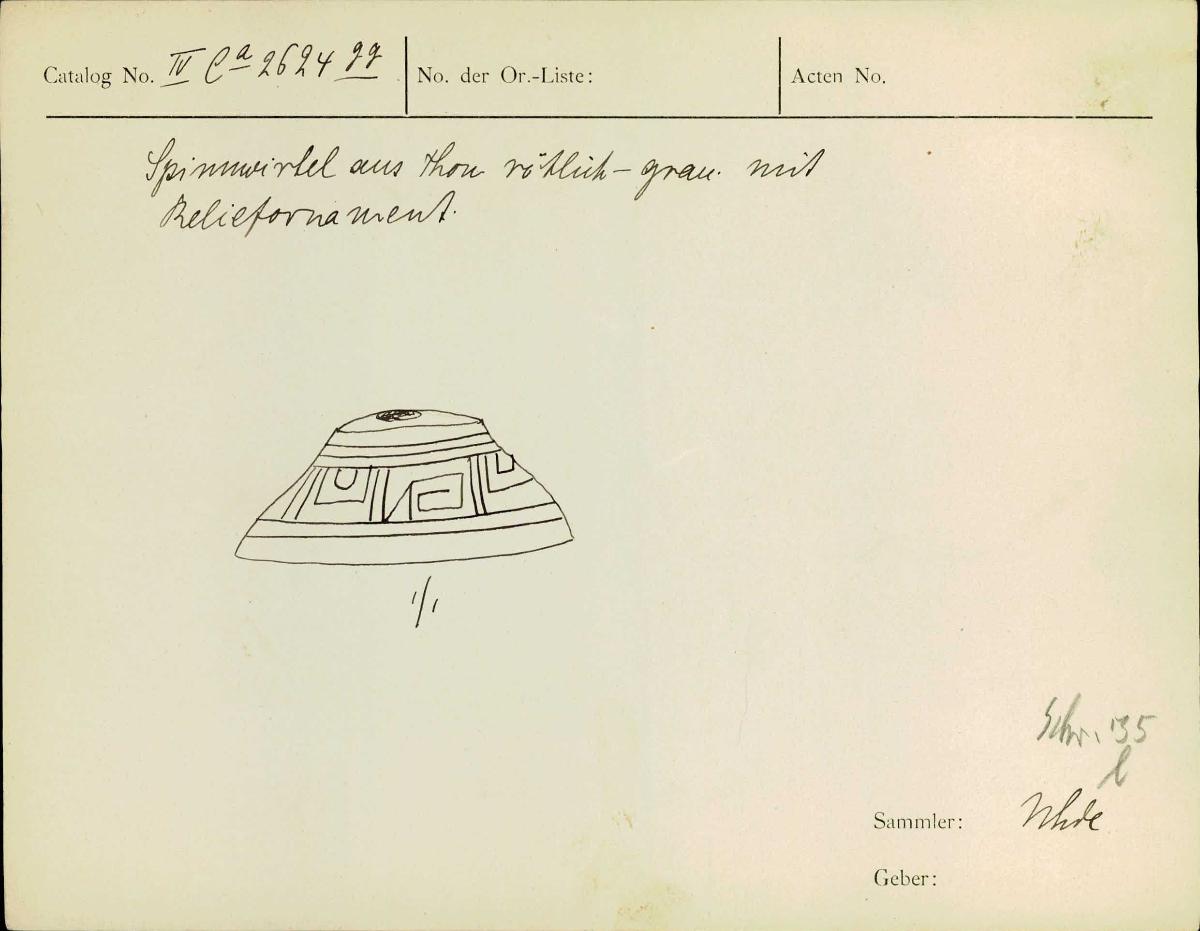 Catalog No. IV Ca 2624 gg
No. der Or.-Liste:
Acten No.
Spinnwirtel aus Thon rötlich-grau. mit
Reliefornament.
1/1
Schr. 135
l
Sammler: Uhde
Geber: